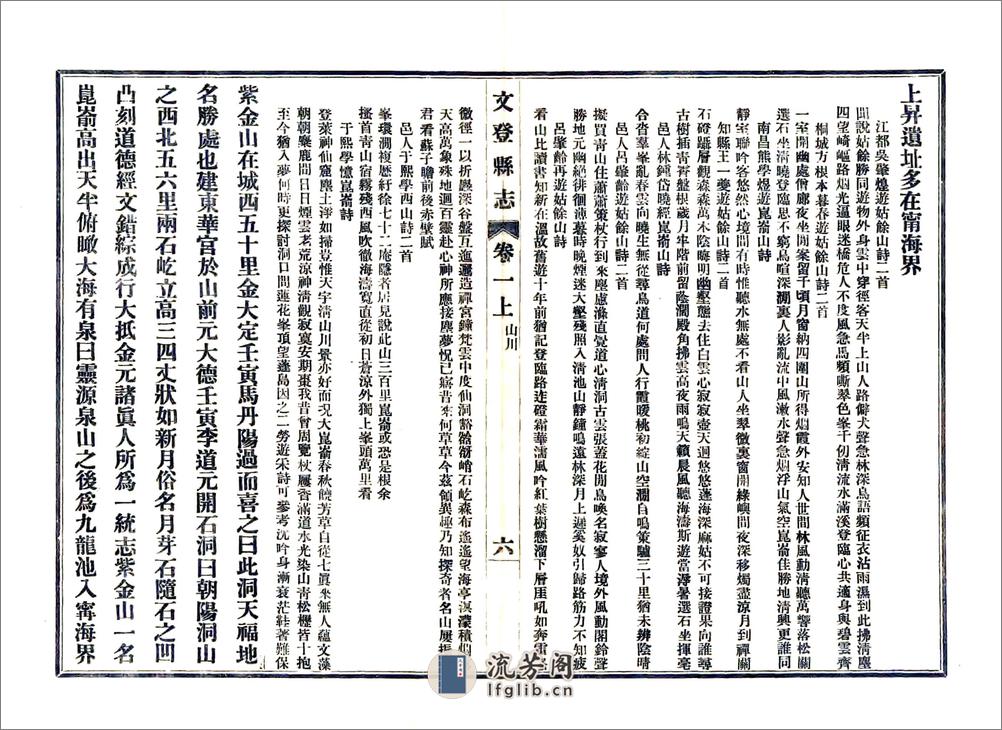 上昇遺址多在甯海界
江都吳肇煌遊姑餘山詩二首
閒說姑餘勝同遊物外身雲中穿徑客天半上山人路僻犬聲急林深鳥語頻征衣沾雨濕到此拂清塵
四望崎嶇路烟光逼眼迷橋危人不度風急馬頻嘶翠色峯千仞清流水滿溪登臨心共遠身與碧雲齊
桐城方根本暮春遊姑餘山詩二首
一室開幽處僧廊夜坐閒案留千頃月窗納四圍山所得烟霞外安知人世間林風動清聽萬響落松關
選石坐清曉登臨思不窮鳥喧深澗裏人影亂流中風漱水聲急烟浮山氣空崑崙佳勝地清興更誰同
南昌熊學煜遊崑崙山詩
靜室聯吟客悠然心境閒有時惟聽水無處不看山人坐翠微裏窗開綠嶼間夜深移燭盡涼月到禪關
知縣王一夔遊姑餘山詩二首
石磴躡層觀森森萬木陰晦明幽壑態去住白雲心寂寂壺天迥悠悠蓬海深麻姑不可接證果向誰尋
古樹插青霄盤根歲月牢階前留蔭濶殿角拂雲高夜雨鳴天籟晨風聽海濤斯遊當淨暑選石坐揮毫
邑人林鍾岱曉經崑崙山詩
合沓羣峯亂春雲向曉生無從尋鳥道何處問人行霞暖桃初綻山空澗自鳴策驢三十里猶未辨陰晴
邑人呂肇齡遊姑餘山詩二首
擬買青山住蕭蕭策杖行到來塵慮滌直覺道心清洞古雲張蓋花閒鳥喚名寂寥人境外風動閣鈴聲
勝地元幽絕徘徊薄暮時晚煙迷大壑殘照入清池山靜鐘鳴遠林深月上遲奚奴引歸路筋力不知疲
呂肇齡再遊姑餘山詩
看山比讀書知新在溫故舊遊十年前猶記登臨路連磴霜華濡風吟紅葉樹懸溜下層厓吼如奔雷
文登縣志
卷一上
山川
六
微徑一以折巉深谷盤互迤邐造禪宮鐘梵雲中度仙洞豁然谺石屹森布遙遙望海亭溟濛積烟
天高萬象殊地迥百靈赴心神所應接塵夢怳已寤昔來何草草今茲領異趣乃知探奇者名山屢振
君看蘇子瞻前後赤壁賦
邑人于熙學西山詩二首
峯環澗麽紆徐七十二庵隱者居見說此山三百里崑崙或恐是根余
搔首青山宿霧殘西風吹徹海濤寬直從初日蒼涼外獨上峯頭萬里看
于熙學憶崑崙詩
登萊神仙窟塵土濘如掃豈惟天宇清山川景亦好而況大崑崙春秋饒芳草自從七眞來無人蘊文藻
朝朝麋鹿間日日煙雲老荒涼神清觀寂寞安期棗我昔曾周覽杖屨香滿道水光染山青松櫪皆十抱
至今猶入夢何時更探討洞口閒蓮花峯頂望蓬島因之二勞遊宋詩可參考沈吟身漸衰茫鞋著難保
紫金山在城西五十里金大定壬寅馬丹陽過而喜之曰此洞天福地
名勝處也建東華宮於山前元大德壬寅李道元開石洞曰朝陽洞山
之西北五六里兩石屹立高三四丈狀如新月俗名月芽石隨石之凹
凸刻道德經文錯綜成行大抵金元諸眞人所爲一統志紫金山一名
崑嵛高出天半俯瞰大海有泉曰靈源泉山之後爲九龍池入甯海界
流芳阁
lfglib.cn